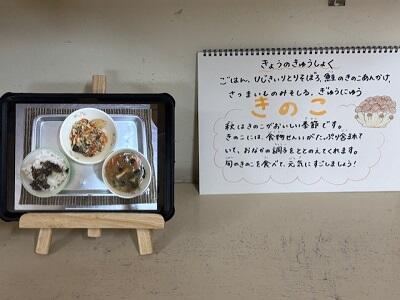 きょうのきゅうしょく
ごはん、ひじきいりとりそぼろ、鮭のきのこあんかけ、
さつまいものみそしる、ぎゅうにゅう
きのこ
秋はきのこがおいしい季節です。
きのこには、食物せんいがたっぷり含まれて
いて、おなかの調子をととのえてくれます。
旬のきのこを食べて、元気にすごしましょう！